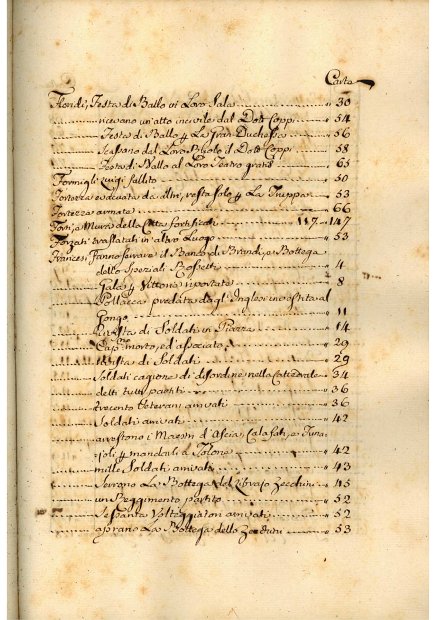 Carte
Floridi, Festa di Ballo in Loro Sala " 30
ricevano un'atto incivile dal Dott Coppi " 54
Festa di Ballo p La Gran Duchessa " 56
Scasano dal Loro Ruolo il Dott Coppi " 58
Festa di Ballo al Loro Teatro gratis " 65
Formigli Luigi fallito " 50
Fortezza evacuata da altri, resta solo p La Truppa " 53
Fortezza armata " 66
Forti, e Mura della Città fortificati 117 " 147
Forzati traslatati in altro Luogo " 53
Francesi, fanno serrare il Banco di Brandi, e Bottega
dello Speziali Rossetti " 4
Gala p Vittorie riportate " 8
Pollacca predata dagl'Inglesi incostita al
Gongo " 11
Rivista di Soldati in Piazza " 14
morto, ed associato " 29
Rivista di Soldati " 29
Soldati cagione di disordine nella Cattedrale " 34
detti tutti partiti " 36
trecento Veterani arrivati " 36
Soldati arrivati " 42
arrestono i Maestri d'Ascia, Calafati, e Funa
joli p mandarli a Tolone " 42
mille Soldati arrivati " 43
Serrono La Bottega del Librajo Zecchini " 45
un Reggimento partito " 52
Sessanta Volteggiatori arrivati " 52
aprano La Bottega dello Zecchini " 53